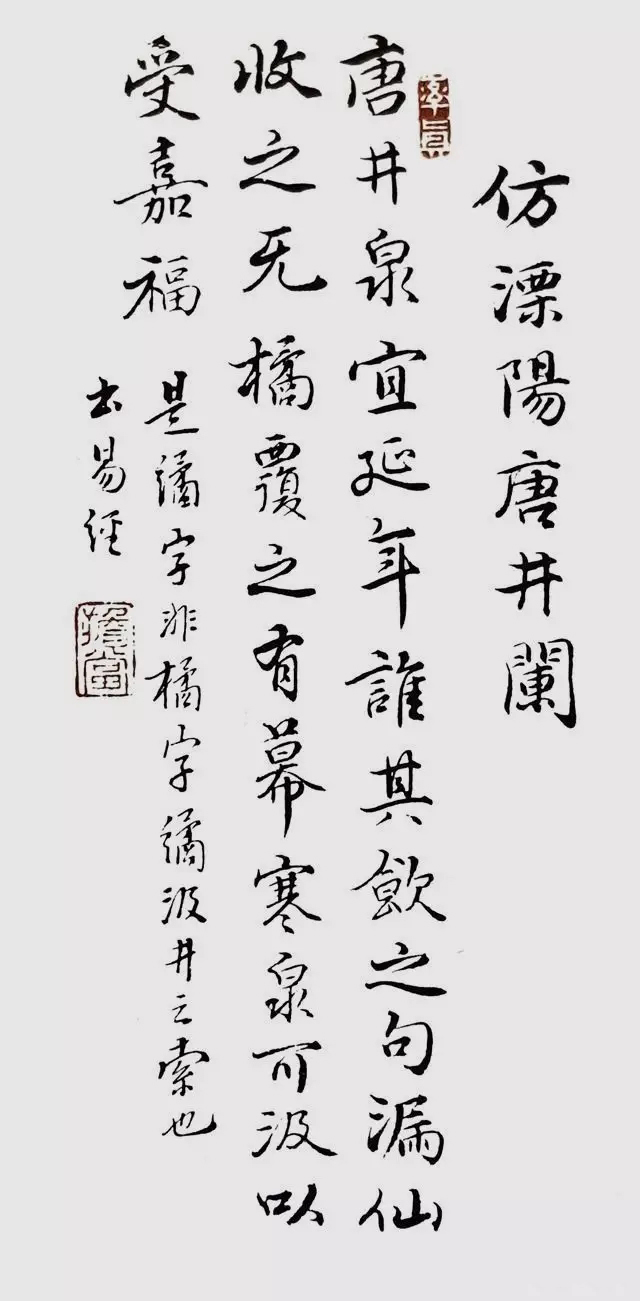 仿溧陽唐井闌
率真
唐井泉宜延年誰其飲之句漏仙
收之无橘覆之有幕寒泉可汲以
受嘉福
是繘字非橘字繘汲井之索也
出易經